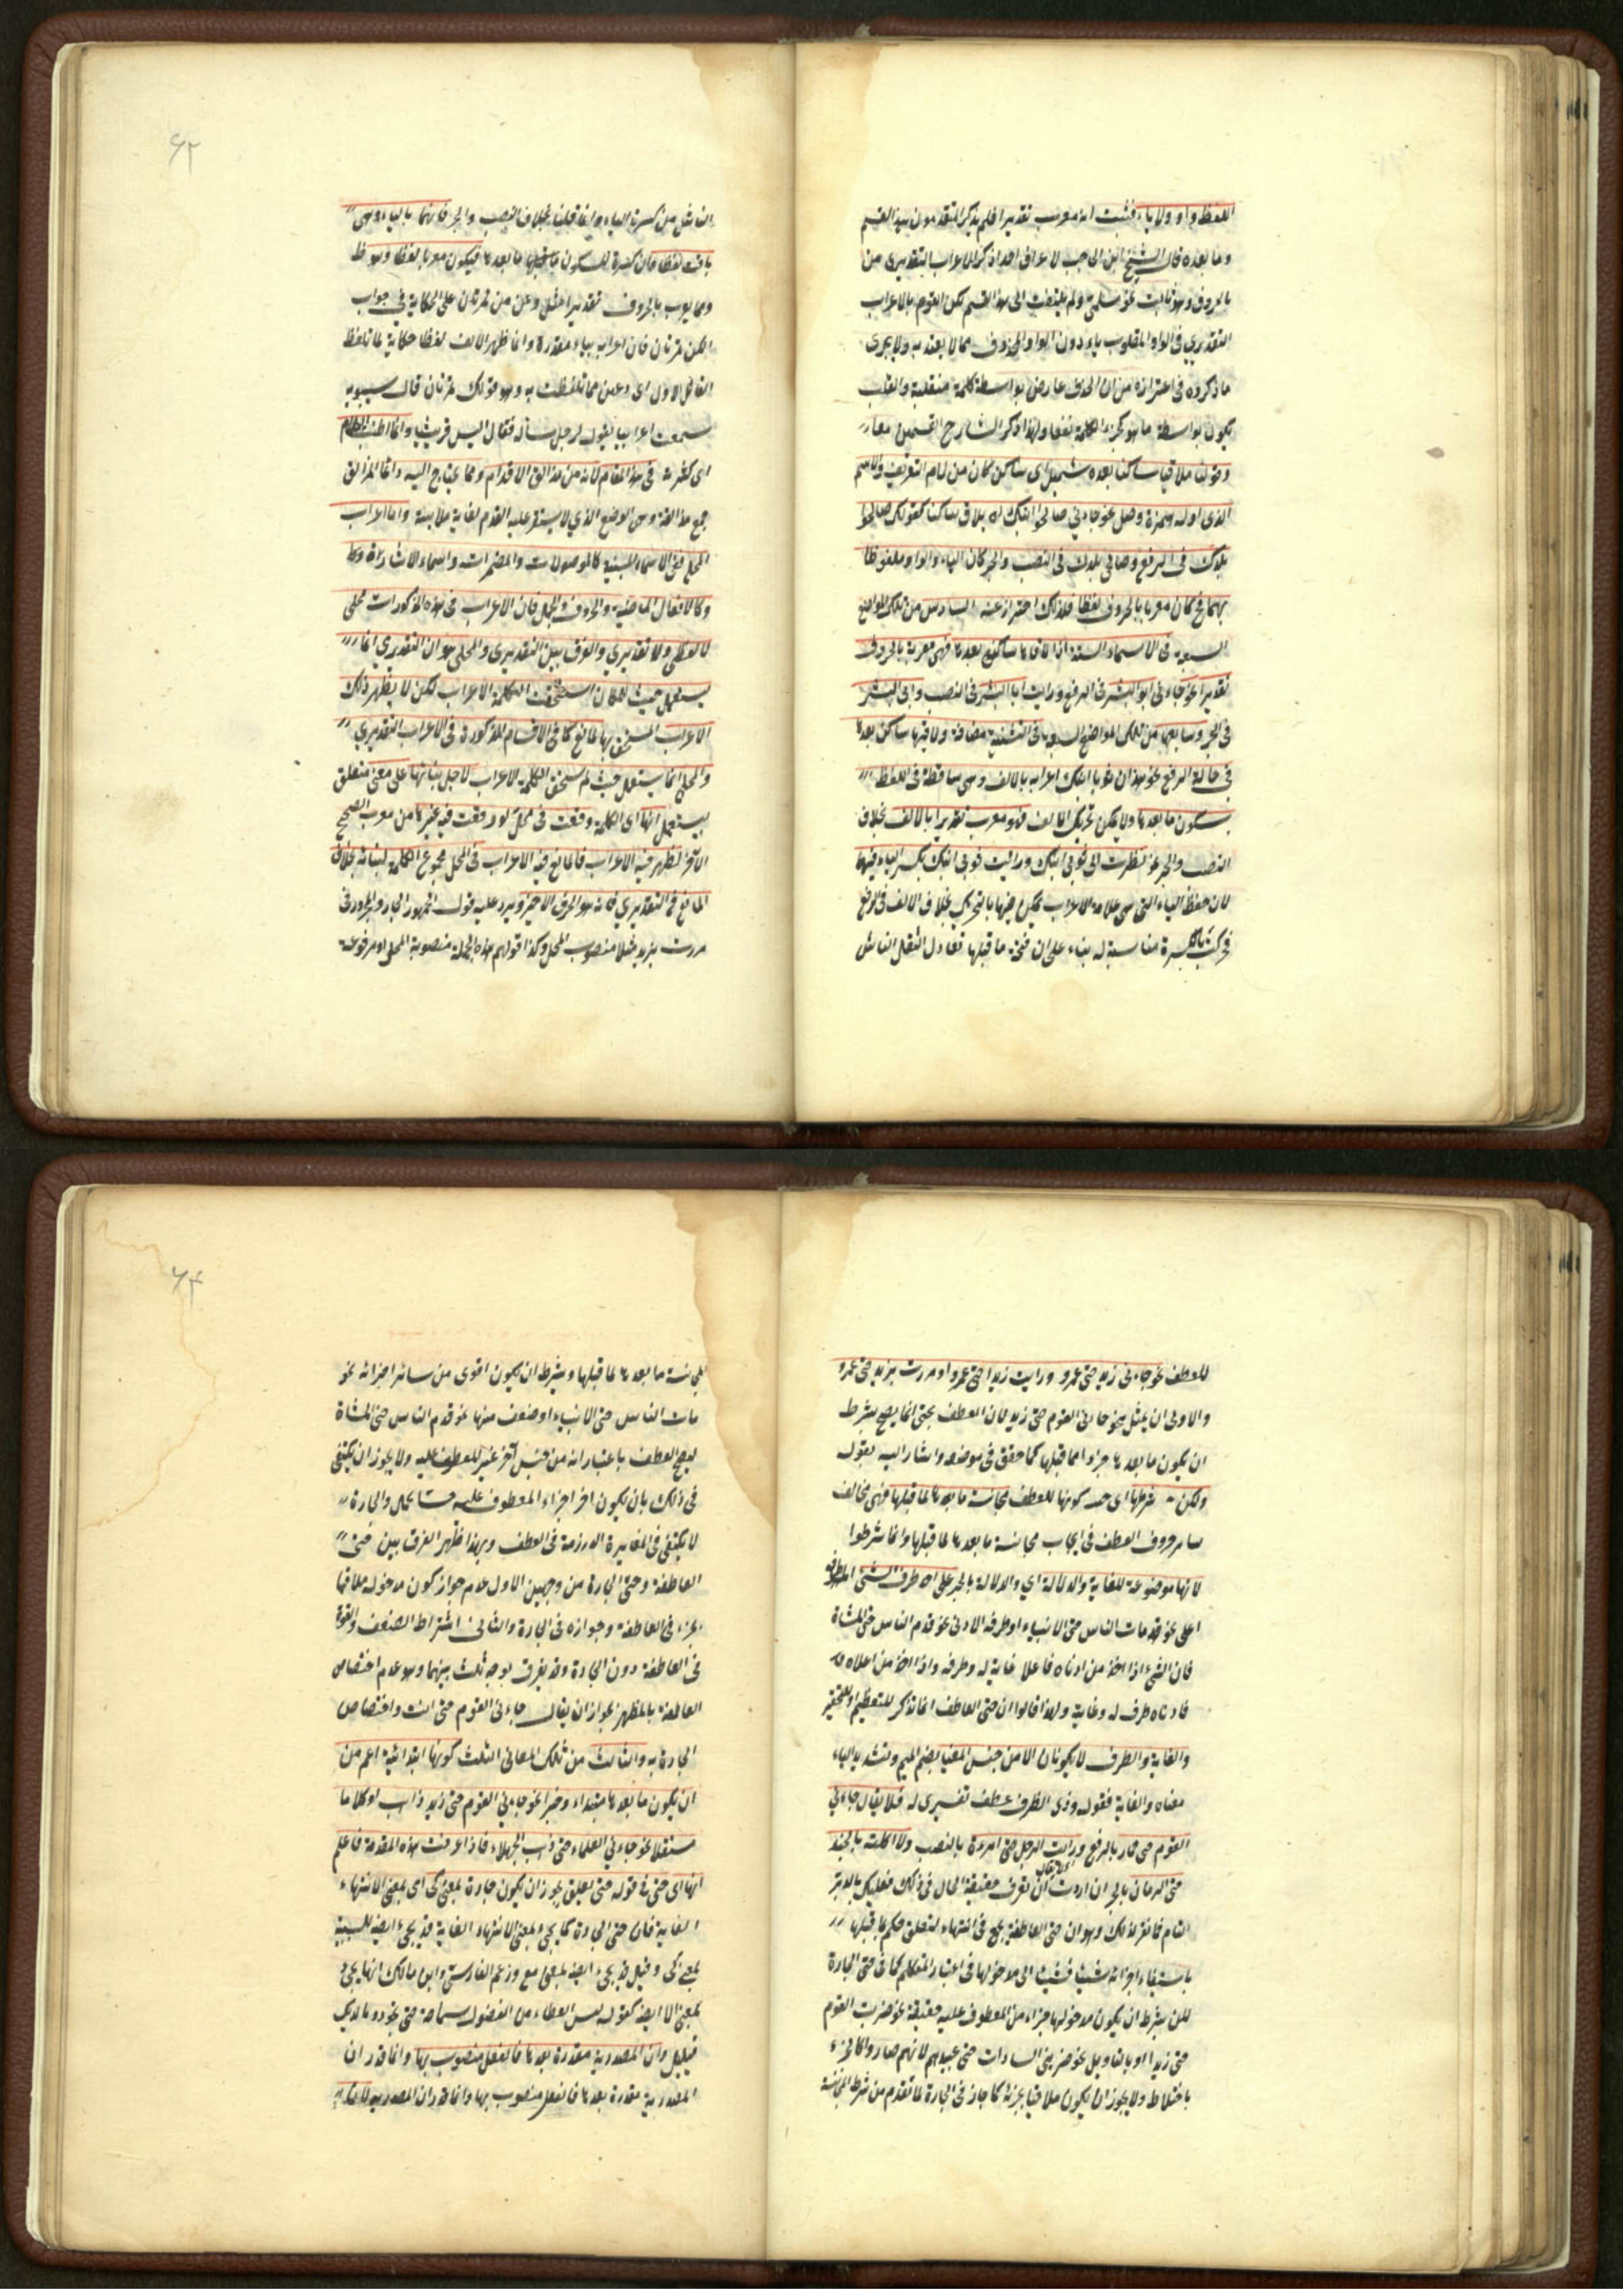 اللفظ واو ولا ياء فثبت انه معرب تقديرا فلم يذكر المتقدمون هذا القسم
وما بعده قال الشيخ ابن الحاجب لا اعرف احدا ذكر الاعراب التقديري من
بالحروف وهو ثابت نحو مسلمي ولم يلتفت الى هذا القسم لكن القوم بالاعراب
التقديري في الواو المقلوب ياء دون الواو المحذوف مما لا يعتد به ولا يجرى
ما ذكروه في اعتذاره من ان الحذف عارض بواسطة كلمة منفصلة والقلب
يكون بواسطة ما هو كجزء الكلمة ولهذا ذكر الشارح القسمين معا
وقولنا ملاقيا ساكنا بعده شمل اي ساكن كان من لام التعريف والاسم
الذي اوله همزة وصل نحو جاءني صالحوا ابنك لم يلاق ساكنا كقولك صالحوا
بلدك في الرفع وصالحي بلدك في النصب والجر كان الياء والواو ملفوظا
بهما فح كان معربا بالحروف لفظا فلذلك احترز عنه السادس من تلك المواضع
السبعة في الاسماء الستة اذا لاقاها ساكن بعدها فهي معربة بالحروف
تقديرا نحو جاءني ابو البشر في الرفع ورايت ابا البشر في النصب وابي البشر
في الجر وسابعها من تلك المواضع السبعة في التثنية مضافة ولاقيها ساكن بعدها
في حالة الرفع نحو هذان ثوبا ابنك اعرابه بالالف وهي ساقطة في اللفظ
بسكون ما بعدها ولا يمكن تحريك الالف فهو معرب تقديرا بالالف بخلاف
النصب والجر نحو نظرت الى ثوبي ابنك ورايت ثوبي ابنك بكسر الياء فيهما
لان حفظ الياء التي هي علامة الاعراب ممكن فيها بالتحريك بخلاف الالف في الرفع
فحركت بالكسرة مناسبة له بناء على ان فتحة ما قبلها تعادل الثقل الناشى
الناشى من كسرة الياء وانما قلنا بخلاف النصب والجر فانهما بالياء وهي
باقية لفظا فان كسرة السكون ما بعدها فيكون معربا لفظا وهو ظ
ومما يعرب بالحروف تقديرا مثل دعني من تمرتان على الحكاية في جواب
الكن تمرتان فان اعرابه بياء مقدرة وانما ظهر الالف لفظا حكاية لما تلفظ
القائل الاول اى دعني مما تلفظت به وهو قولك تمرتان قال سيبويه
سمعت اعرابيا يقول لرجل ساله فقال اليس قرشيا وانما اطنب الكلام
اى كثرته في هذا المقام لانه من مزالق الاقدام ومما يحتاج اليه دائما المزالق
جمع مزالقة وهي الموضع الذي لا يستقر عليه القدم لغاية ملاينة واما اعراب
المحل ففي الاسماء المبنية كالموصولات والمضمرات واسماء الاشارة وكا
وكالافعال الماضية والحروف والجمل فان الاعراب في هذه المذكورات محلي
لا لفظي ولا تقديري والفرق بين التقديري والمحلي هو ان التقديري انما
يستعمل حيث كان استحقت الكلمة الاعراب لكن لا يظهر ذلك
الاعراب المستحق بها لمانع كما في الاقسام المذكورة في الاعراب التقديري
والمحلي انما يستعمل حيث لم يستحق الكلمة الاعراب لاجل بنائها على معنى متعلق
بيستعمل انها اى الكلمة وقعت في محل لو وقعت فيه غيرها من معرب الصحيح
الآخر لظهر فيه الاعراب فالمانع فيه الاعراب في المحل مجموع الكلمة لبنائه بخلاف
المانع في التقديري فانه هو الحرف الاخير ويرد عليه قول الجمهور الجار والمجرور في
مررت بزيد مثلا منصوب المحل وكذا قولهم هذه الجملة منصوبة المحل او مرفوعة
للعطف نحو جاءني زيد حتى عمرو ورايت زيدا حتى عمروا ومررت بزيد حتى عمرو
والاولى ان يمثل بنحو جاءني القوم حتى زيد لان العطف بحتى انما يصح بشرط
ان يكون ما بعدها جزءا مما قبلها كما حقق في موضعه واشار اليه بقوله
ولكن شرطها اى حد كونها للعطف مجانسة ما بعدها لما قبلها فهي مخالف
سائر حروف العطف في ايجاب مجانسة ما بعدها لما قبلها وانما شرطوا
لانها موضوعة للغاية والدلالة اي والدلالة بالجر على احد طرف الشئ
اعلى نحو قد مات الناس حتى الانبياء او طرفه الادنى نحو قدم الناس حتى المشاة
فان الشئ اذا اخذ من ادناه فاعلا غاية له وطرفه واذا اخذ من اعلاه
فادناه طرف له وغاية ولهذا قالوا ان حتى العاطف انما تذكر للتعظيم او للتحقير
والغاية والطرف لا يكونان الا من جنس المغيا بضم الميم وتشديد الياء
معناه والغاية فقوله وذى الطرف عطف تفسيرى له فلا يقال جاءني
القوم حتى حمار بالرفع ورايت الرجل حتى امرءة بالنصب ولا اكلت بالخبز
حتى الرمان بالجر ان اردت ان تعرف حقيقة الحال في ذلك فعليك بالتدبر
التام فانقر لذلك وهو ان حتى العاطفة يجئ في انتهاء لتعلق حكم ما قبلها
باستيفاء اجزائه شيئا فشيئا الى مدخولها في اعتبار المتكلم كما في حتى الجارة
لكن بشرط ان يكون مدخولها جزءا من المعطوف عليه حقيقة نحو ضربت القوم
حتى زيدا او بالتاويل نحو ضربني السادات حتى عبيدهم لانهم صاروا كالجزء
باختلاط ولا يجوز ان يكون ملاقيا بجزئه كما جاز في الجارة لما تقدم من شرط المجانسة
لمجانسة ما بعدها لما قبلها ويشرط ان يكون اقوى من سائر اجزائه نحو
مات الناس حتى الانبياء او ضعف منها نحو قدم الناس حتى المشاة
ليصح العطف باعتبار انه من جنس آخر غير للمعطوف عليه ولا يجوز ان يكتفى
في ذلك بان يكون اخر اجزاء المعطوف عليه حسا بحمل والجارة
لا يكتفى في المغايرة اللازمة في العطف وبهذا ظهر الفرق بين حتى
العاطفة وحتى الجارة من وجهين الاول عدم جواز كون مدخوله ملاقيا
بجزء في العاطفة وجوازه في الجارة والثاني اشتراط الضعف والقوة
في العاطفة دون الجارة وقد يفرق بوجه ثلث بينهما وهو عدم اختصاص
العاطفة بالمظهر بجواز ان يقال جاءني القوم حتى انت واختصاص
الجارة به والثالث من تلك المعاني الثلث كونها ابتدائية اعم من
ان يكون ما بعدها مبتداء وخبرا نحو جاءني القوم حتى زيد ذاهب او كلاما
مستقلا نحو جاءني العلماء حتى ذهب الجهلاء فاذا عرفت هذه المقدمة فاعلم
انها اى حتى في قوله حتى يعلق يجوز ان يكون جارة بمعنى كى اى بمعنى الانتهاء
الغاية فان حتى الجارة كما يجئ بمعنى الانتهاء الغاية قد يجئ ايضا للسببية
بمعنى كى وقيل قد يجئ ايضا بمعنى مع وزعم الفارسي وابن مالك انها يجئ
بمعنى الا ايضا كقوله ليس العطاء من الفضول سماحة حتى تجود وما لديك
قيليل وان المصدرية مقدرة بعدها فالفعل منصوب بها وانما قدر ان
المصدرية مقدرة بعدها فالفعل منصوب بها وانما قدر ان المصدرية